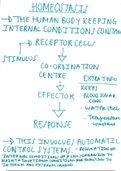 HOMEOSTASIS
→ THE HUMAN BODY KEEPING
INTERNAL CONDITIONS CONSTANT
→ RECEPTOR CELLS
STIMULUS
CO-ORDINATION
CENTRE
EXTRA INFO
KEEPS
EFFECTOR
- BLOOD SUGAR
CONC
- WATER LEVEL
- Temperature
constant
RESPONSE
→ THIS INVOLVES AUTOMATIC
CONTROL SYSTEMS. - REGULATION OF
INTERNAL CONDITIONS OF A CELL/ORGANISM TO
MAINTAIN OPTIMUM CONDITIONS FOR FUNCTION
INTERNAL AND EXTERNAL CHANGES